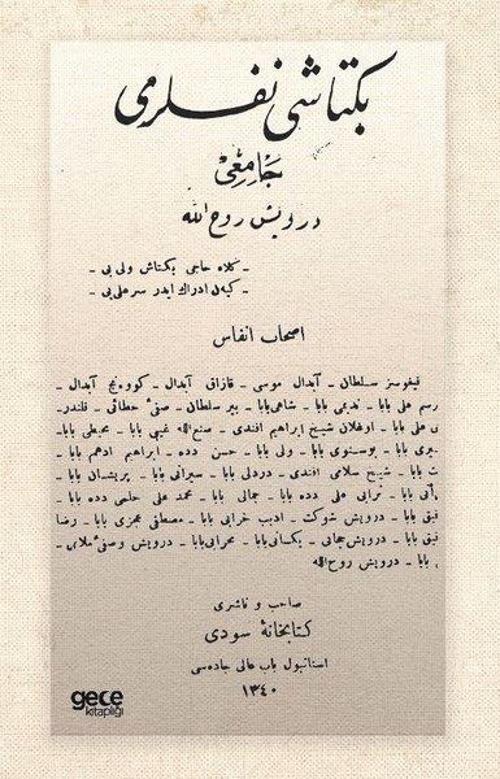 بكتاشی نفسلری
جَامِعِیْ
درویش روح الله
ـ كلاه حاجی بكتاش ولی بی ـ
ـ كیدن ادراك ایدر سر علی بی ـ
اصحاب انفاس
قیغوسز سلطان ـ آبدال موسی ـ قازاق آبدال ـ آبدال ـ
رسم علی بابا ـ ندیمی بابا ـ شاهی بابا ـ بیر سلطان ـ صفیٔ خطائی ـ قلندر ـ
ی علی بابا ـ اوغلان شیخ ابراهیم افندی ـ صنع الله غیبی بابا ـ محیطی بابا ـ
یری بابا ـ بوسنوی بابا ـ ولی بابا ـ حسن دده ـ ابراهیم ادهم بابا ـ
ت بابا ـ شیخ سلامی افندی ـ دردلی بابا ـ سیرانی بابا ـ پریشان بابا ـ
بابا ـ ترابی علی دده بابا ـ جمالی بابا ـ محمد علی حلمی دده بابا ـ
فیق بابا ـ درویش شوكت ـ ادیب خرابی بابا ـ مصطفی عجزی بابا ـ رضا
فیق بابا ـ درویش جمالی ـ بابا ـ محرابی بابا ـ درویش وصفیٔ ملامی ـ
بابا ـ درویش روح الله
صاحب و ناشری
كتابخانهٔ سودی
استانبول باب عالی جاده سی
١٣٤٠
gece
kitaplığı